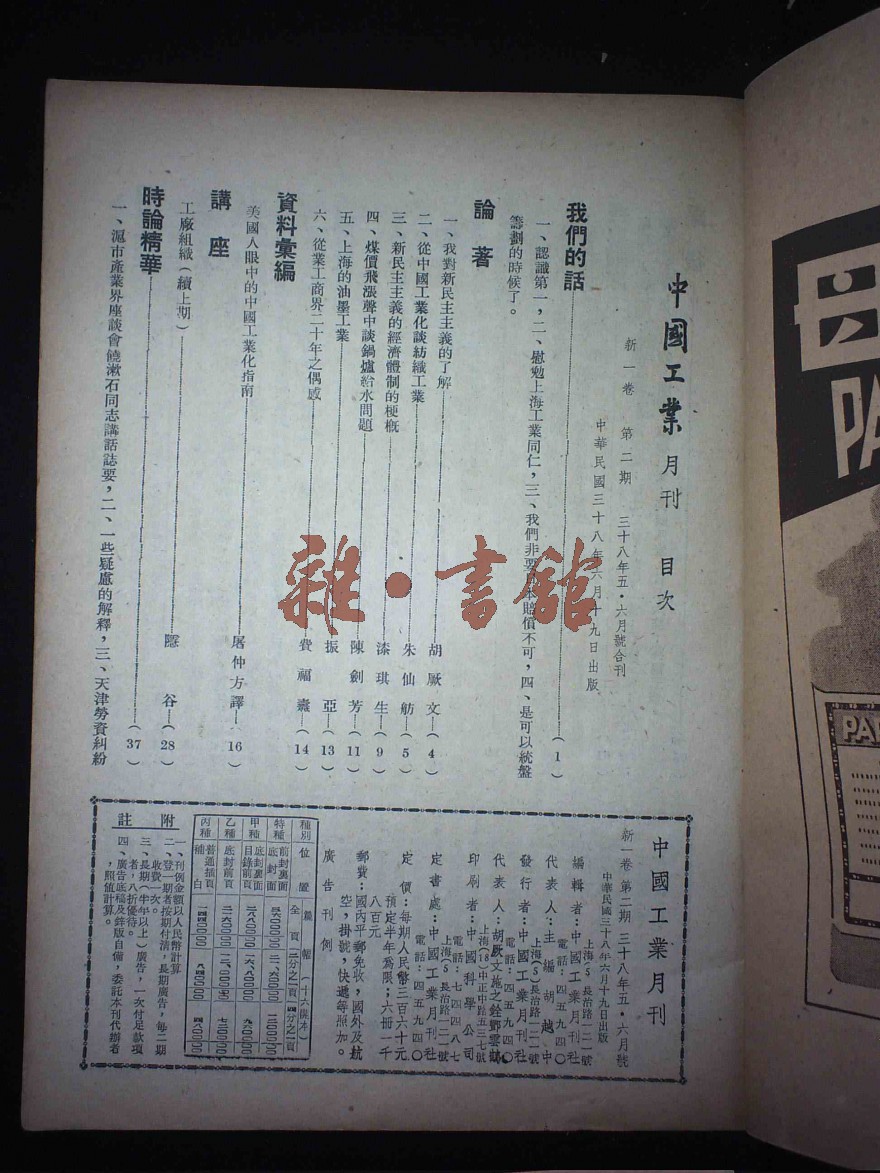 中國工業月刊 目次
新一卷 第二期 三十八年五·六月號合刊
中華民國三十八年六月十九日出版
我們的話 (1)
一、認識第一，二、慰勉上海工業同仁，三、我們非要 賠償不可，四、是可以統盤
籌劃的時候了。
論著
一、我對新民主主義的了解 胡厥文 (4)
二、從中國工業化談紡織工業 朱仙舫 (5)
三、新民主主義的經濟體制的梗概 漆琪生 (9)
四、煤價飛漲聲中談鍋爐給水問題 陳劍芳 (11)
五、上海的油墨工業 振亞 (13)
六、從業工商界二十年之偶感 費福燾 (14)
資料彙編
美國人眼中的中國工業化指南 屠仲方譯 (16)
講座
工廠組織（續上期） 隱谷 (28)
時論精華 (37)
一、滬市產業界座談會饒漱石同志講話誌要，二、一些疑慮的解釋，三、天津勞資糾紛
中國工業月刊
新一卷 第二期 三十八年五·六月號
中華民國三十八年六月十九日出版
編輯者：中國工業月刊社
上海(5)長治路一二一號
電話：四五九四〇
代表人：主編 胡越中
發行者：中國工業月刊社
上海(5)長治路一二一號
電話：四五九四〇
代表人：胡厥文 施之銓 鄧雲鶴
印刷者：中國科學公司
上海(18)中正中路五三七號
電話：七四四八七
定書處：中國工業月刊社
上海(5)長治路一二一號
電話：四五九四〇
定價：每期人民幣三百六十元
預定半年爲限；六冊一千
八百元
郵費：國內平郵免收，國外及航
空，掛號，快遞等照加。
廣告刊例
種別 位置 篇幅（十六開本）
全頁 二分之一頁 四分之一頁
特種 前封裏面 底封面
甲種 底封裏面 目錄前頁
乙種 底封前頁
丙種 普通插頁 補白
附註
一、刊例金額以人民幣計算
二、登一期者按期付清，長期廣告，每二期
收費一次。
三、長期（半年以上）廣告，一次付足款項
者，八折優待。
四、廣告底稿及鋅版自備，委託本刊代辦者
，照值計算。
雜·書館
PA
PAR